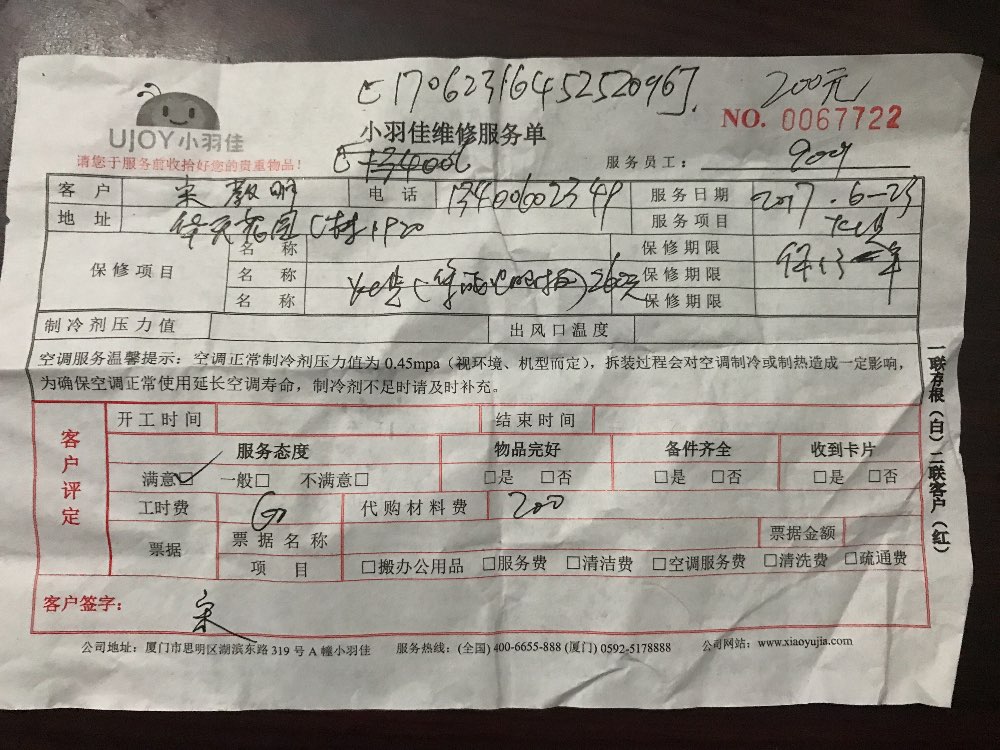 E17062316452520967.
200元
UJOY小羽佳
小羽佳维修服务单
NO. 0067722
请您于服务前收拾好您的贵重物品!
服务员工:
客户 宋 电话 13400602349 服务日期 2017.6-23
地址 花园C栋1920 服务项目
保修项目 名称 保修期限
名称 保修期限
名称 保修期限
制冷剂压力值 出风口温度
空调服务温馨提示:空调正常制冷剂压力值为 0.45mpa(视环境、机型而定),拆装过程会对空调制冷或制热造成一定影响,
为确保空调正常使用延长空调寿命,制冷剂不足时请及时补充。
客户评定
开工时间 结束时间
服务态度 物品完好 备件齐全 收到卡片
满意☑ 一般□ 不满意□ □是 □否 □是 □否 □是 □否
工时费 60 代购材料费 200
票据 票据名称 票据金额
项目 □搬办公用品 □服务费 □清洁费 □空调服务费 □清洗费 □疏通费
客户签字: 宋
公司地址:厦门市思明区湖滨东路 319 号 A 幢小羽佳 服务热线:(全国) 400-6655-888 (厦门) 0592-5178888 公司网站:www.xiaoyujia.com
一联存根(白)二联客户(红)